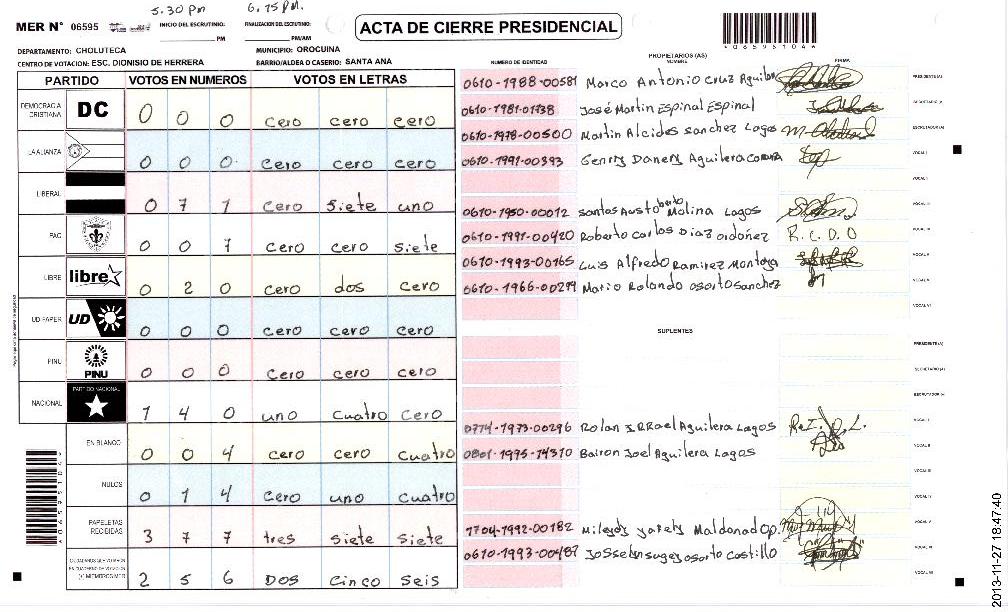 5.30 PM 6.15 PM.
MER N° 06595 INICIO DEL ESCRUTINIO: PM FINALIZACION DEL ESCRUTINIO: PM/AM
ACTA DE CIERRE PRESIDENCIAL
DEPARTAMENTO: CHOLUTECA MUNICIPIO: OROCUINA
CENTRO DE VOTACION: ESC. DIONISIO DE HERRERA BARRIO/ALDEA O CASERIO: SANTA ANA
PARTIDO VOTOS EN NUMEROS VOTOS EN LETRAS
DEMOCRACIA CRISTIANA DC 0 0 0 cero cero cero
LA ALIANZA 0 0 0 cero cero cero
LIBERAL 0 7 1 cero siete uno
PAC 0 0 7 cero cero siete
LIBRE libre 0 2 0 cero dos cero
UD FAPER UD 0 0 0 cero cero cero
PINU PINU 0 0 0 cero cero cero
NACIONAL PARTIDO NACIONAL 1 4 0 uno cuatro cero
EN BLANCO 0 0 4 cero cero cuatro
NULOS 0 1 4 cero uno cuatro
PAPELETAS RECIBIDAS 3 7 7 tres siete siete
CIUDADANOS QUE VOTARON EN CUADERNO DE VOTACION (+) MIEMBROS MER 2 5 6 Dos cinco seis
NUMERO DE IDENTIDAD PROPIETARIOS (AS) NOMBRE FIRMA
0610-1988-00581 Marco Antonio Cruz Aguilar PRESIDENTE(A)
0610-1981-01738 José Martin Espinal Espinal SECRETARIO (A)
0610-1978-00500 Martin Alcides Sanchez Lagos ESCRUTADOR(A)
0610-1991-00393 Genrry Danery Aguilera VOCAL I
VOCAL II
0610-1950-00012 Santos Austoberto Molina Lagos VOCAL III
0610-1991-00420 Roberto Carlos Diaz ordoñez R.C.D.O VOCAL IV
0610-1993-00165 Luis Alfredo Ramirez Montoya VOCAL V
0610-1966-00299 Mario Rolando osorto sanchez
VOCAL VII
SUPLENTES
PRESIDENTE(A)
SECRETARIO(A)
ESCRUTADOR(A)
0774-1973-00296 Rolan Aguilera Lagos VOCAL I
0801-1995-14310 Bairon Joel Aguilera Lagos VOCAL II
VOCAL III
VOCAL IV
1704-1992-00182 Mileydy yarely Maldonado p. VOCAL V
0610-1993-00487 Josselin sugey osorto castillo
VOCAL VII
2013-11-27 18:47:40